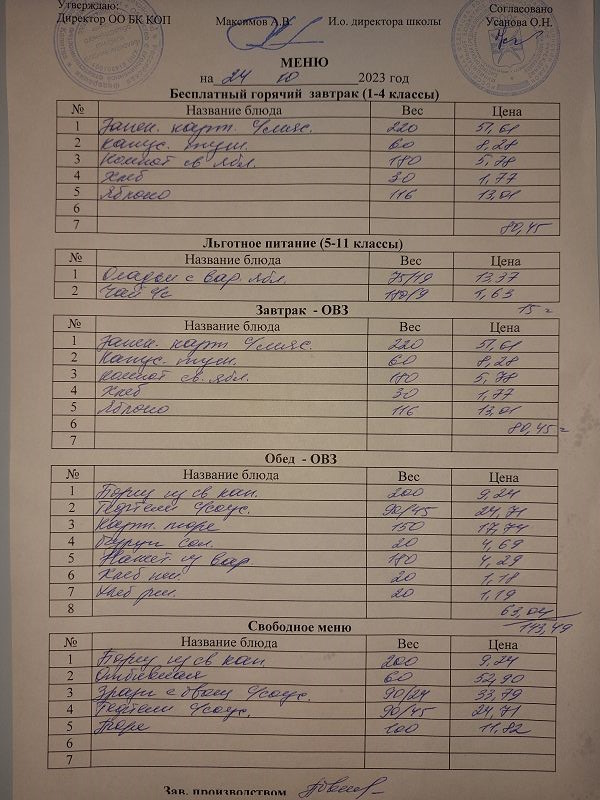 Утверждаю: Согласовано
Директор ОО БК КОП Максимов А.В. И.о. директора школы Усанова О.Н.
МЕНЮ
на 24 10 2023 год
Бесплатный горячий завтрак (1-4 классы)
№ Название блюда Вес Цена
1 Запек. карт. с/мяс. 220 51,61
2 Капус. туш. 60 8,28
3 Компот св. ябл. 180 5,78
4 Хлеб 30 1,77
5 Яблоко 116 13,01
6
7 80,45
Льготное питание (5-11 классы)
№ Название блюда Вес Цена
1 Оладьи с вар. ябл. 75/19 13,37
2 Чай с/с 180/9 1,63
15=
Завтрак - ОВЗ
№ Название блюда Вес Цена
1 Запек. карт с/мяс. 220 51,61
2 Капус. туш. 60 8,28
3 Компот св. ябл. 180 5,78
4 Хлеб 30 1,77
5 Яблоко 116 13,01
6 80,45=
7
Обед - ОВЗ
№ Название блюда Вес Цена
1 Борщ из св кап. 200 9,24
2 Тефтели с/соус. 90/45 24,71
3 Карт. пюре 150 17,74
4 Огурцы сол. 20 4,69
5 Напит из вар 180 4,29
6 Хлеб пш. 20 1,18
7 Хлеб рж. 20 1,19
8 63,04
143,49
Свободное меню
№ Название блюда Вес Цена
1 Борщ из св кап. 200 9,24
2 Отбивная 60 52,90
3 Зразы с овощ с/соус. 90/24 33,79
4 Тефтели с/соус. 90/45 24,71
5 Пюре 100 11,82
6
7
Зав. производством